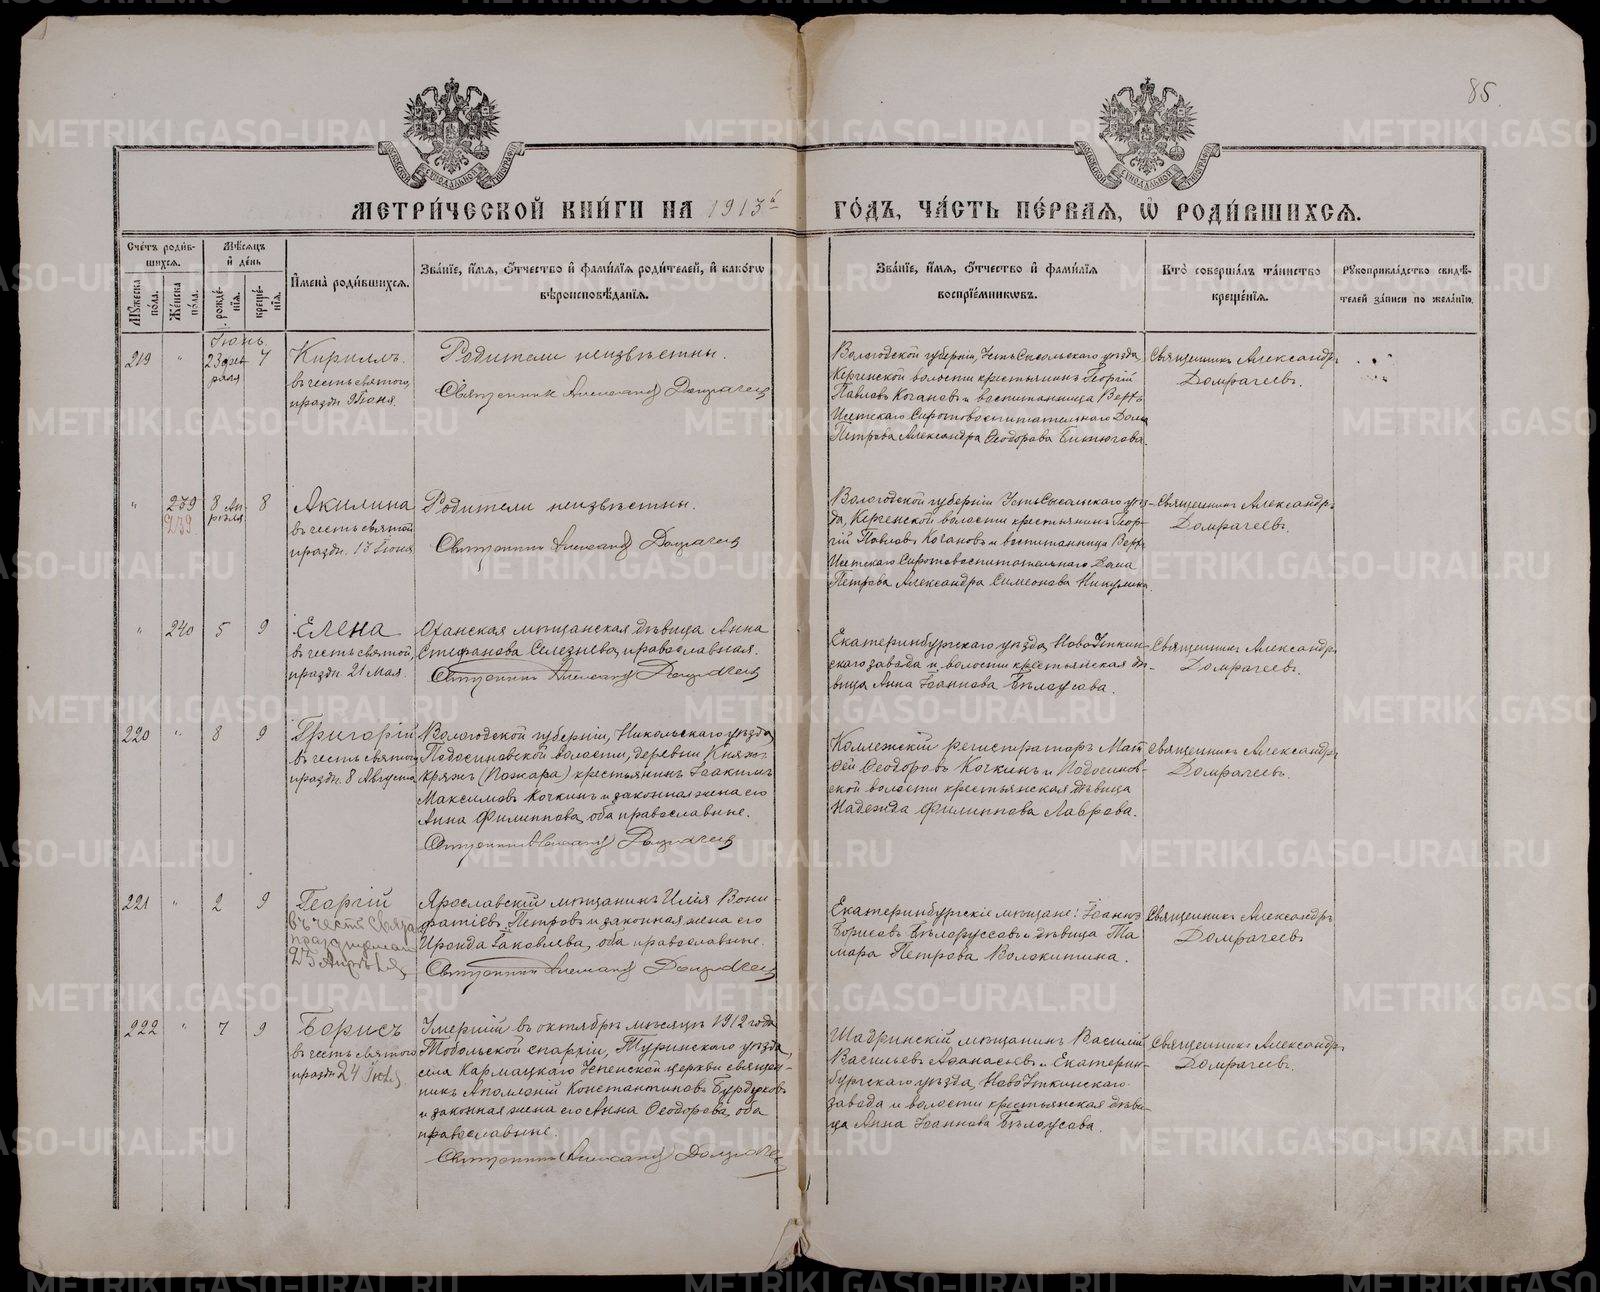 85.
МЕТРИ́ЧЕСКОЙ КНИ́ГИ НА 1913й
ГО́ДЪ, ЧА́СТЬ ПЕ́РВАЯ, Ѡ РОДИ́ВШИХСЯ.
Сче́тъ роди́в-
шихся.
Мꙋ́жеска по́ла.
Же́нска по́ла.
Мѣ́сяцъ
и де́нь
рожде́-
нїя.
креще́-
нїя.
Имена̀ роди́вшихся.
Зва́нїе, и́мя, ѻ́тчество и фами́лїя роди́телей, и како́гѡ
вѣроисповѣ́данїя.
Зва́нїе, и́мя, ѻ́тчество и фами́лїя
воспрїе́мникѡвъ.
Кто̀ соверша́лъ та́инство
креще́нїя.
Рꙋкоприкла́дство свидѣ́-
телей за́писи по жела́нїю.
Іюнь.
219 " 23 фев-
раля 7
Кириллъ
въ честь святого,
праздн. 9 Іюня.
Родители неизвѣстны.
Священникъ Александръ Домрачеевъ
Вологодской губерніи, Усть Сысольскаго уѣзда,
Керченской волости крестьянинъ Георгій
Павловъ Когановъ и воспитанница Верхъ
Исетскаго Сиротовоспитательнаго Дома
Петрова Александра Ѳеодорова
Священникъ Александръ
Домрачеевъ.
" 239 8 Ап-
рѣля 8
239
Акилина
въ честь святой,
праздн. 13 Іюня
Родители неизвѣстны.
Священникъ Александръ Домрачеевъ
Вологодской губерніи Усть Сысольскаго уѣз-
да, Керченской волости крестьянинъ Геор-
гій Павловъ Когановъ и воспитанница Верхъ
Исетскаго Сиротовоспитательнаго Дома
Петрова Александра Симеонова Никулина
Священникъ Александръ
Домрачеевъ.
" 240 5 9
Елена
въ честь святой,
праздн. 21 Мая.
Оханская мѣщанская дѣвица Анна
Стефанова Селезнева, православная.
Священникъ Александръ Домрачеевъ
Екатеринбургскаго уѣзда, Ново Уткин-
скаго завода и волости крестьянская дѣ-
вица Анна Іоаннова Бѣлоусова.
Священникъ Александръ
Домрачеевъ.
220 " 8 9
Григорій
въ честь святого,
праздн. 8 Августа
Вологодской губерніи, Никольскаго уѣзда,
Подосиновской волости, деревни Княже-
кряжъ (Пожара) крестьянинъ Іоакимъ
Максимовъ Кочкинъ и законная жена его
Анна Филиппова, оба православные.
Священникъ Александръ Домрачеевъ
Коллежскій регистраторъ Мат-
ѳей Ѳеодоровъ Кочкинъ и Подосинов-
ской волости крестьянская дѣвица
Надежда Филиппова Лаврова.
Священникъ Александръ
Домрачеевъ.
221 " 2 9
Георгій
въ честь святого
празднуемаго
23 Апрѣля
Ярославскій мѣщанинъ Илія Вони-
фатіевъ Петровъ и законная жена его
Ироида Іаковлева, оба православные.
Священникъ Александръ Домрачеевъ
Екатеринбургскіе мѣщане: Іоаннъ
Борисовъ Бѣлоруссовъ и дѣвица Та-
мара Петрова Волокитина.
Священникъ Александръ
Домрачеевъ
222 " 7 9
Борисъ
въ честь святого
праздн 24 Іюля
Умершій въ октябрѣ мѣсяцѣ 1912 года
Тобольской епархіи, Туринскаго уѣзда,
села Кармацкаго Успенской церкви священ-
никъ Аполлоній Константиновъ Бурдуковъ
и законная жена его Анна Ѳеодорова, оба
православные.
Священникъ Александръ Домрачеевъ
Шадринскій мѣщанинъ Василій
Васильевъ Аѳанасьевъ и Екатерин-
бургскаго уѣзда, Ново Уткинскаго
завода и волости крестьянская дѣви-
ца Анна Іоаннова Бѣлоусова.
Священникъ Александръ
Домрачеевъ.
METRIKI.GASO-URAL.RU